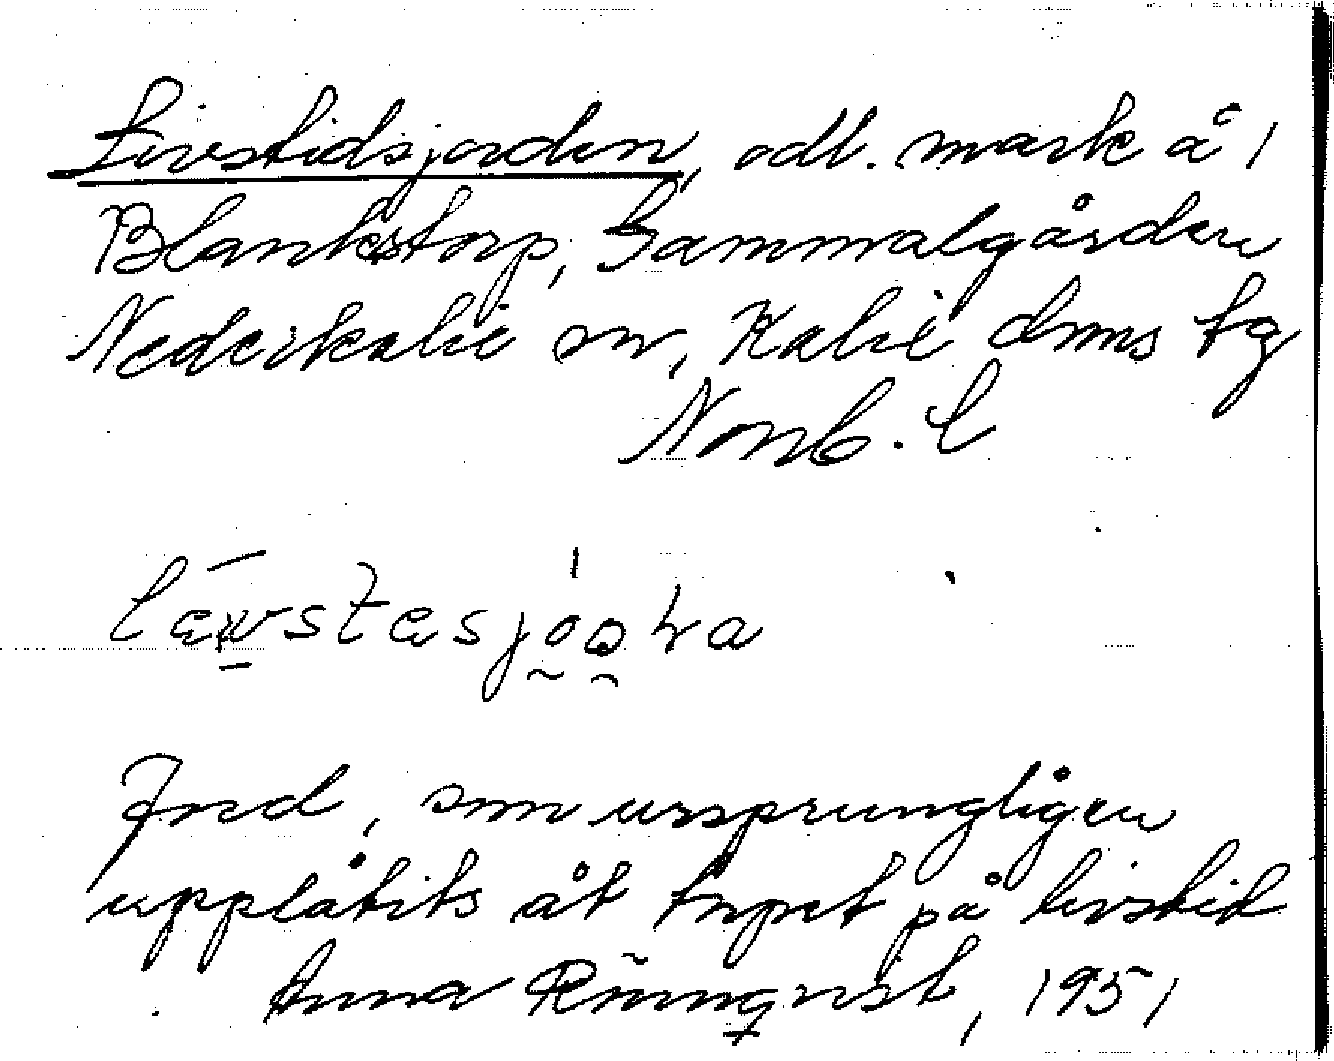 Livstidsjorden, odl. mark å 1
Blankstorp, Gammalgården
Nederkalix sn, Kalix dmns tg
Norrb. l
Jord, som ursprungligen
upplåtits åt torpet på livstid
Anna Rönnqvist, 1951